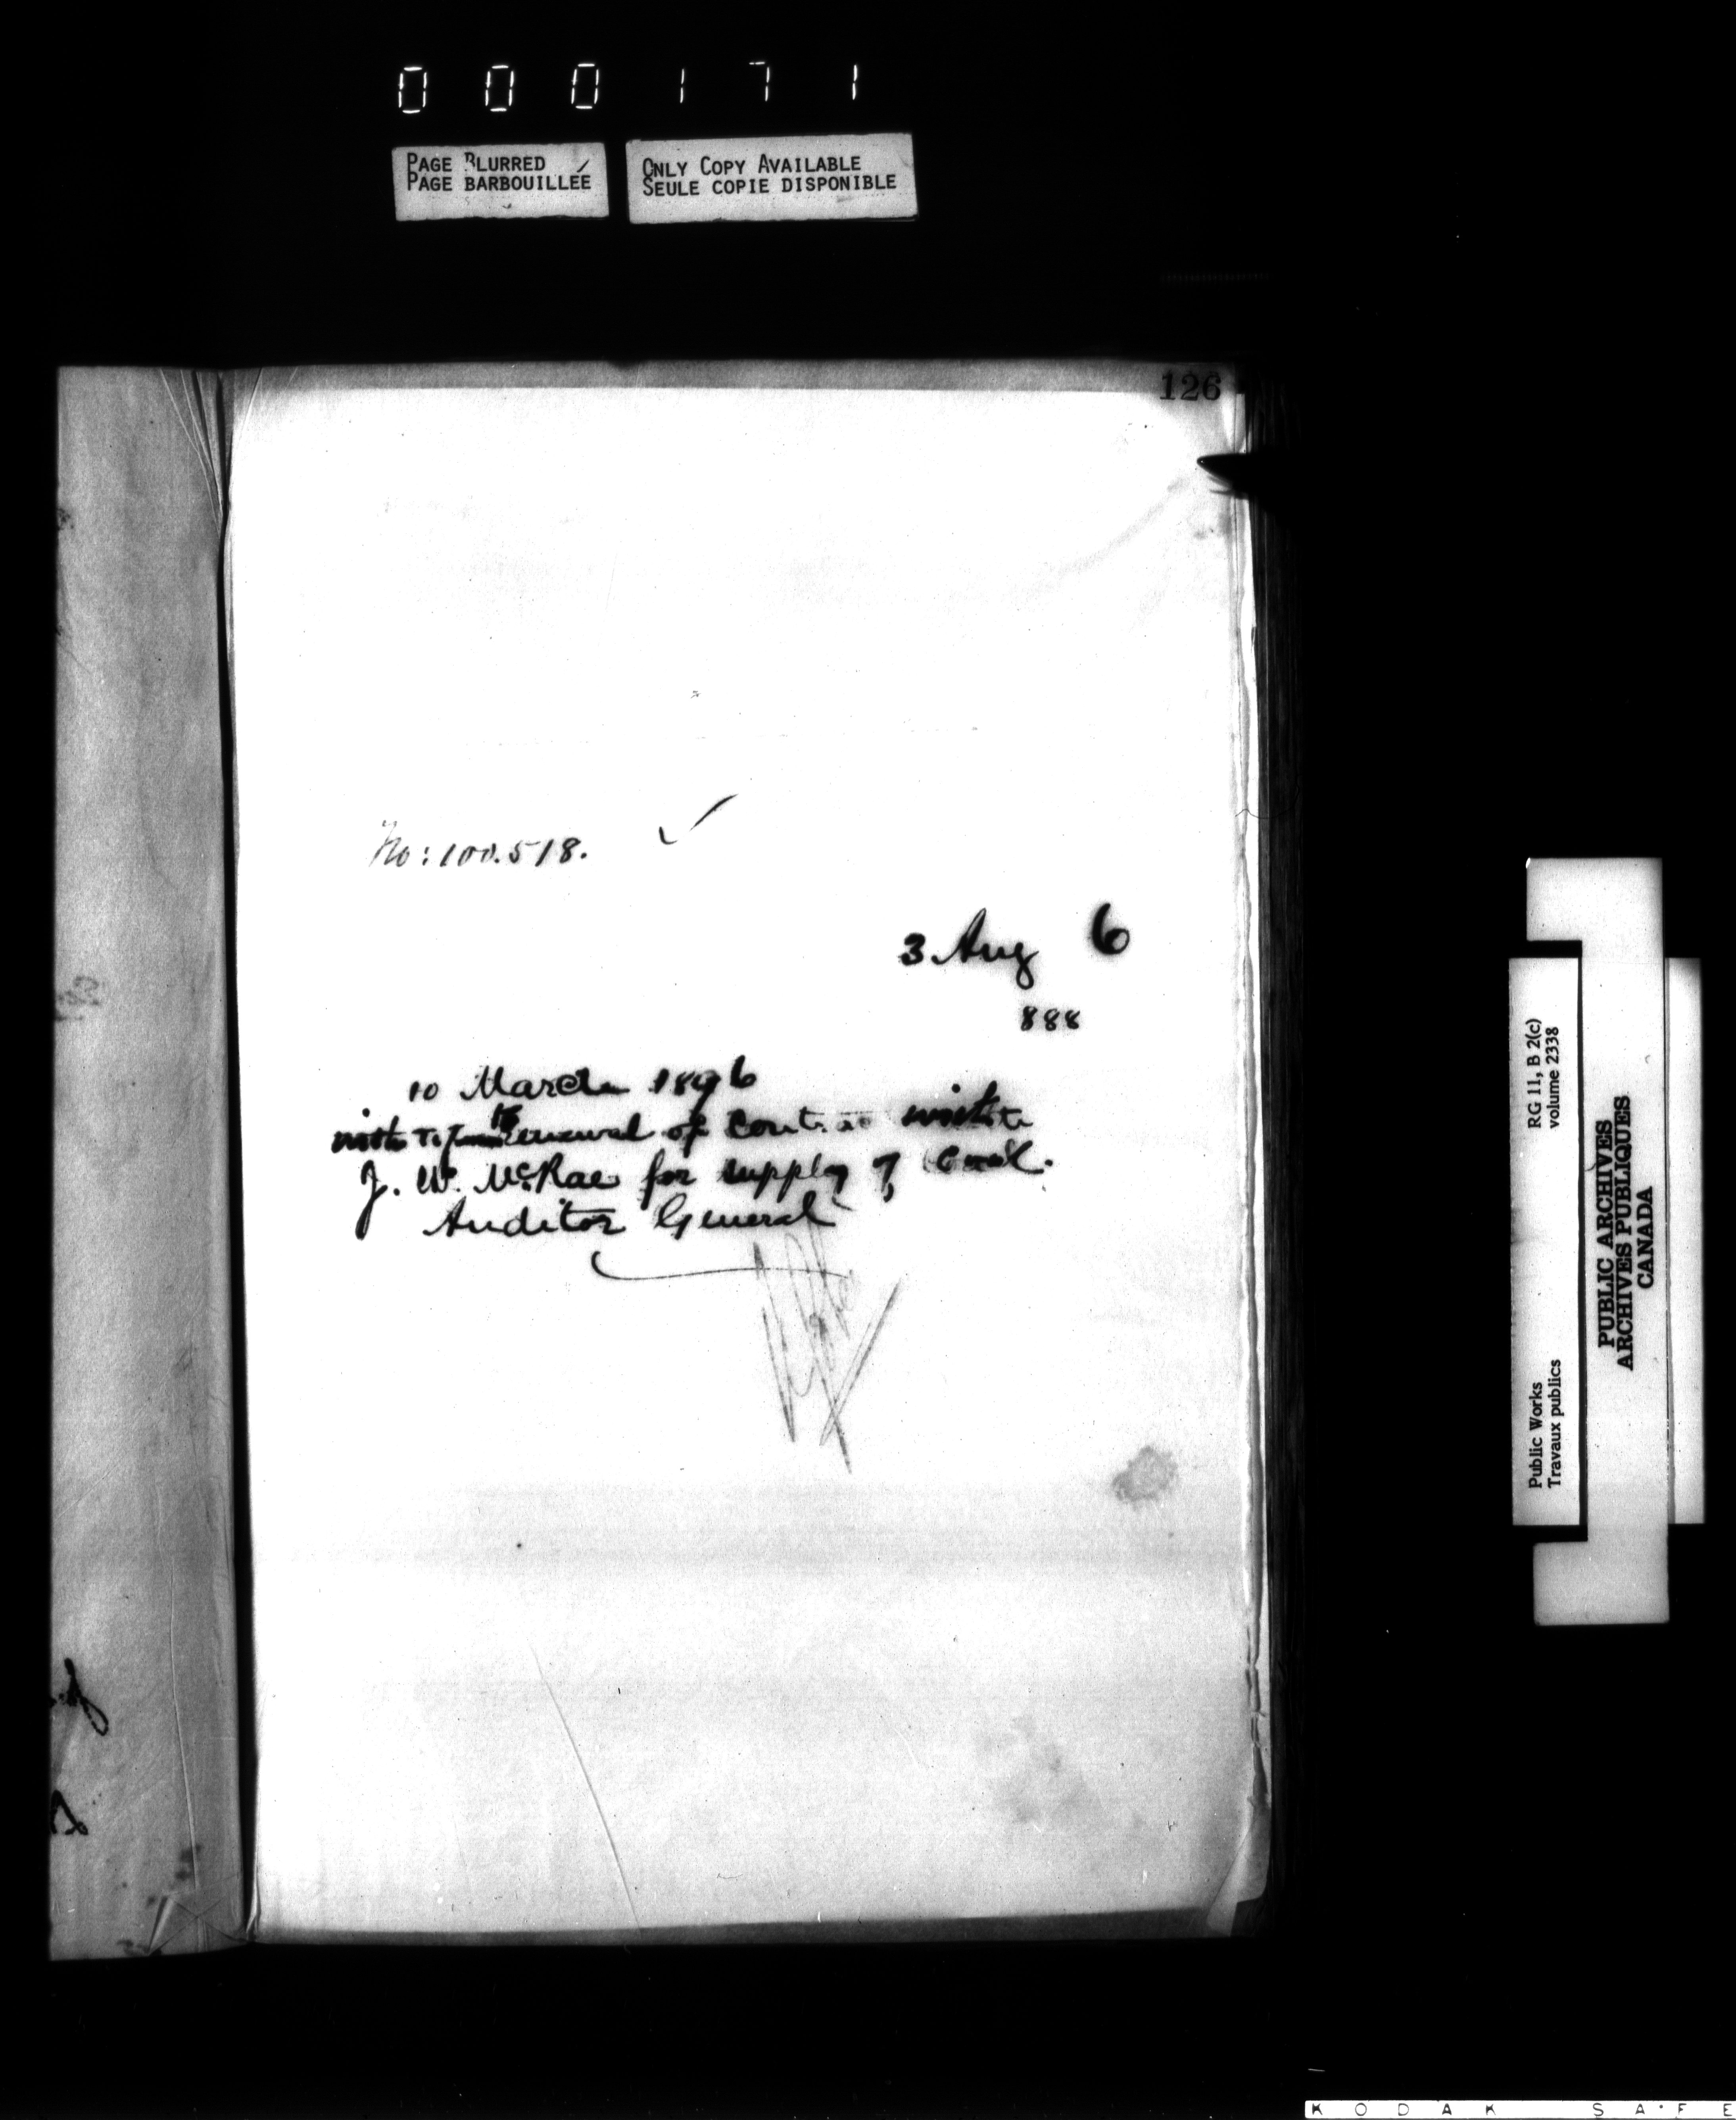 000171
PAGE BLURRED
PAGE BARBOUILLÉE
ONLY COPY AVAILABLE
SEULE COPIE DISPONIBLE
126
No: 100.518.
3 Aug 6
888
10 March 1896
with renewal of with
J. W. McRae for supply of coal.
Auditor General
RG 11, B 2(c)
volume 2338
Public Works
Travaux publics
PUBLIC ARCHIVES
ARCHIVES PUBLIQUES
CANADA
KODAK SAFE